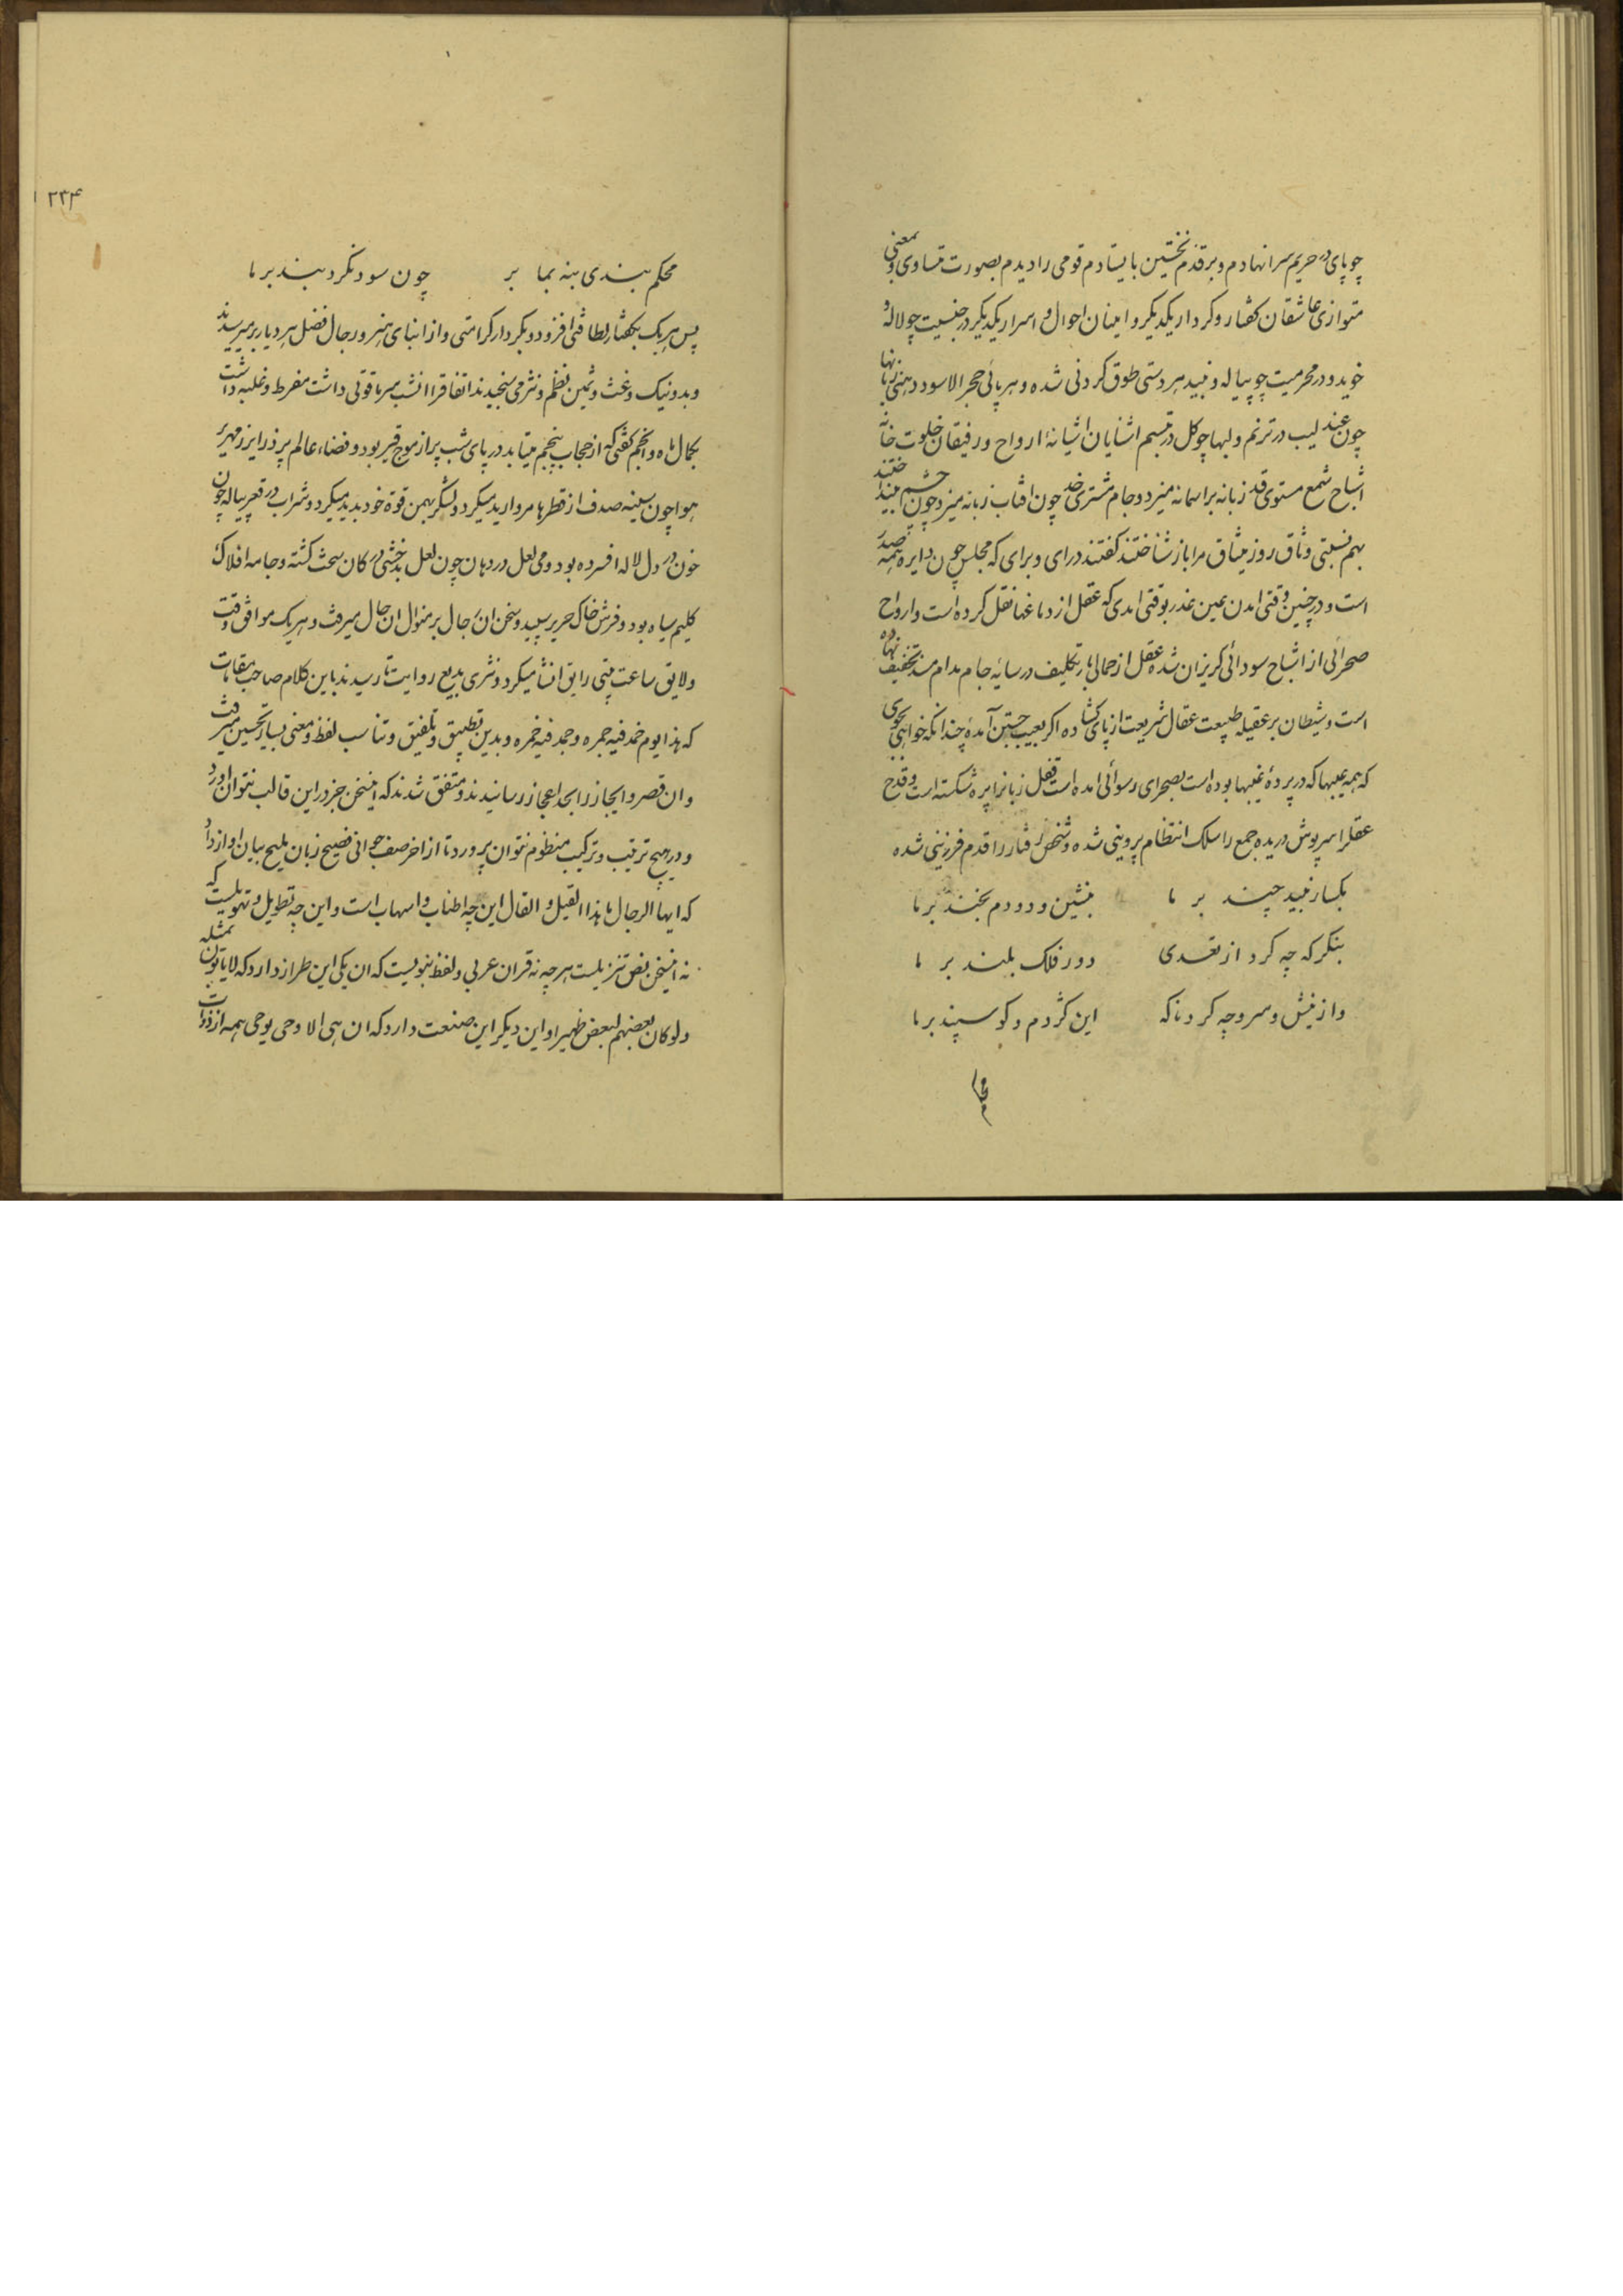 چو پای در حریم سرا نهادم و بر قدم نخستین بایستادم قومی را دیدم بصورت متساوی و بمعنی
متوازی عاشقان کفتار و کردار یکدیکر و امینان احوال و اسرار یکدیکر در جنسیت چو لاله و
خوید و در محرمیت چو پیاله و نبید هر دستی طوق کردنی شده و هر پائی حجر الاسود دهنی زبانها
چون عندلیب در ترنم و لبها چو کل در تبسم اشنایان اشیانهٔ ارواح و رفیقان خلوت خانه
اشباح شمع مستوی قد زبانه بر اسمانه میزد و جام مشتری خد چون افتاب زبانه میزد چون چشم
بهم نسبتی وثاق روز میثاق مرا باز شناختند کفتند در ای و برای که مجلس چون دایره همه صدر
است و در چنین وقتی امدن عین غدر بوقتی امدی که عقل از دماغها نقل کرده است و ارواح
صحرائی از اشباح سودائی کریزان شده عقل از حمالی بار تکلیف در سایهٔ جام مدام مسند تخفیف نهاده
است و شیطان بر عقیله طبیعت عقال شریعت از پای کشاده اکر بعیب جستن آمدهٔ چندانکه خواهی بجوی
که همه عیبها که در پردهٔ غیبها بوده است بصحرای رسوائی امده است قفل زبانرا پره شکسته است و قدح
عقل را سرپوش دریده جمع را سلک انتظام پروینی شده و شخص رفتار را قدم فرزینی شده
بکسار نبید چند بر ما بنشین و دو دم بخند بر ما
بنکر که چه کرد از تعدی دور فلک بلند بر ما
واز نیش و سرو چه کرد ناکه این کژدم و کوسپند بر ما
محکم
۲۳۴
محکم بندی بنه بما بر چون سود نکرد بند بر ما
پس هر یک بکفتار لطافتی افزود و بکردار کرامتی و از ابنای هنر و رجال فضل هر دیار بر میرسیدند
و بد و نیک و غث و ثمین نظم و نثر می سنجیدند اتفاقرا انشب سرما قوتی داشت مفرط و غلبه داشت
بکمال ماه و انجم کفتی که از حجاب پنجم میتابد در پای شب پر از موج قیر بود و فضاء عالم پر ذرایر زمهریر
هوا چون سینه صدف از قطرها مروارید میکرد و لشکر بهمن قوة خود پدید میکرد و شراب در قعر پیاله چون
خون در دل لاله افسرده بود و می لعل در دهان چون لعل بدخشی در کان سخت کشته و جامه افلاک
کلیم سیاه بود و فرش خاک حریر سپید و سخن ان رجال بر منوال ان حال میرفت و هر یک موافق وقت
و لایق ساعت بیتی رایق انشا میکرد و نثری بدیع روایت تا رسیدند باین کلام صاحب مقامات
که هذا یوم خمد فیه جمره و جمد فیه خمره و بدین تطبیق و تلفیق و تناسب لفظ و معنی بسیار تحسین میرفت
و ان قصر و ایجاز را بحد اعجاز رسانیدند و متفق شدند که اینسخن جز در این قالب نتوان اورد
و در هیچ ترتیب و ترکیب منظوم نتوان پرورد تا از اخر صف جوانی فصیح زبان ملیح بیان اواز داد
که ایها الرجال ما هذا القیل و القال این چه اطناب و اسهاب است و این چه تطویل و تهویلست که
نه اینسخن نص تنزیلست هر چه نه قران عربی و لفظ نبویست که ان یکی این طراز دارد که لا یاتون بمثله
ولو کان بعضهم لبعض ظهیرا و این دیکر این صنعت دارد که ان هی الا وحی یوحی همه از ذوات